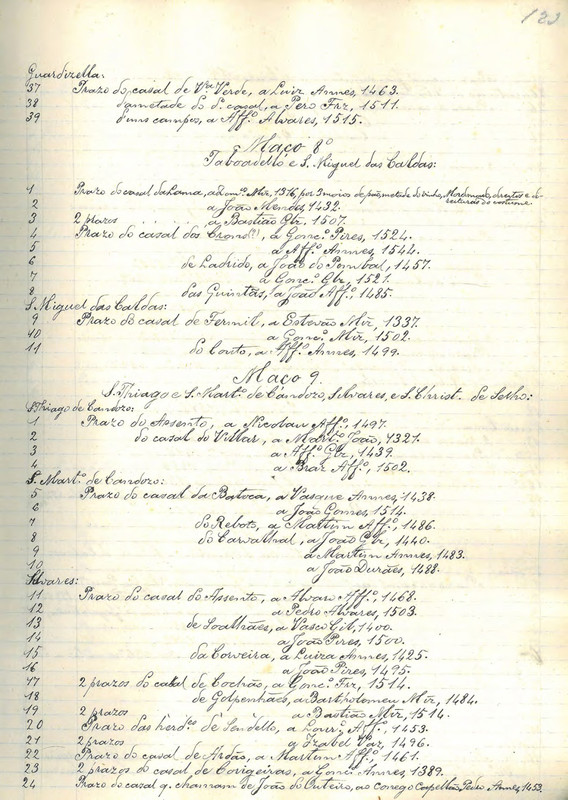 123
Guardizella:
37 Prazo do casal de Vª Verde, a Luiz Annes, 1463.
38 d'ametade do dº casal, a Pero Frz, 1511.
39 d'uns campos, a Affº Alvares, 1515.
Maço 8º
Taboadello e S. Miguel das Caldas:
1 Prazo do casal da Lama, a Domºˢ Mĩz, 1316, por 3 moios de pão, metade do vinho, direitos e
costume.
2 a João Mendes, 1432.
3 2 prazos . . . . . . , a Bastião Glz, 1507.
4 Prazo do casal dos (?), a Gonçº Pires, 1524.
5 a Affº Annes, 1544.
6 de Ladrido, a João do Pombal, 1457.
7 a Gonçº Glz, 1521.
8 das Quintãs, a João Affº, 1485.
S. Miguel das Caldas:
9 Prazo do casal de Fermil, a Estevão Mĩz, 1337.
10 a Gonçº Mĩz, 1502.
11 do Couto, a Affº Annes, 1499.
Maço 9.
S. Thiago e S. Martº de Candozo, Silvares, e S. Christ. de Selho:
S. Thiago de Candozo:
1 Prazo do Assento, a Nicolau Affº, 1497.
2 do casal do Villar, a Martº João, 1321.
3 a Affº Glz, 1439.
4 a Braz Affº, 1502.
S. Martº de Candozo:
5 Prazo do casal da Batoca, a Vasque Annes, 1438.
6 a João Gomes, 1514.
7 do Reboto, a Martim Affº, 1486.
8 do Carvalhal, a João Glz, 1440.
9 a Martim Annes, 1483.
10 a João Durães, 1488.
Silvares:
11 Prazo do casal do Assento, a Alvaro Affº, 1468.
12 a Pedro Alvares, 1503.
13 de Soalhães, a Vasco Gil, 1400.
14 a João Pires, 1500.
15 da Corveira, a Luiza Annes, 1425.
16 a João Pires, 1495.
17 2 prazos do casal de Cochão, a Gonçº Frz, 1514.
18 de Golpenhães, a Bartholomeu Mĩz, 1484.
19 2 prazos a Bastião Mĩz, 1514.
20 Prazo das herdᵉˢ de Sendello, a Lourº Affº, 1453.
21 2 prazos a Izabel Vaz, 1496.
22 Prazo do casal de Ardão, a Martim Affº, 1461.
23 2 prazos do casal de Corigeiras, a Gonçº Annes, 1389.
24 Prazo do casal q. chamam de João do Outeiro, ao conego Capellão Pedro Annes, 1453.